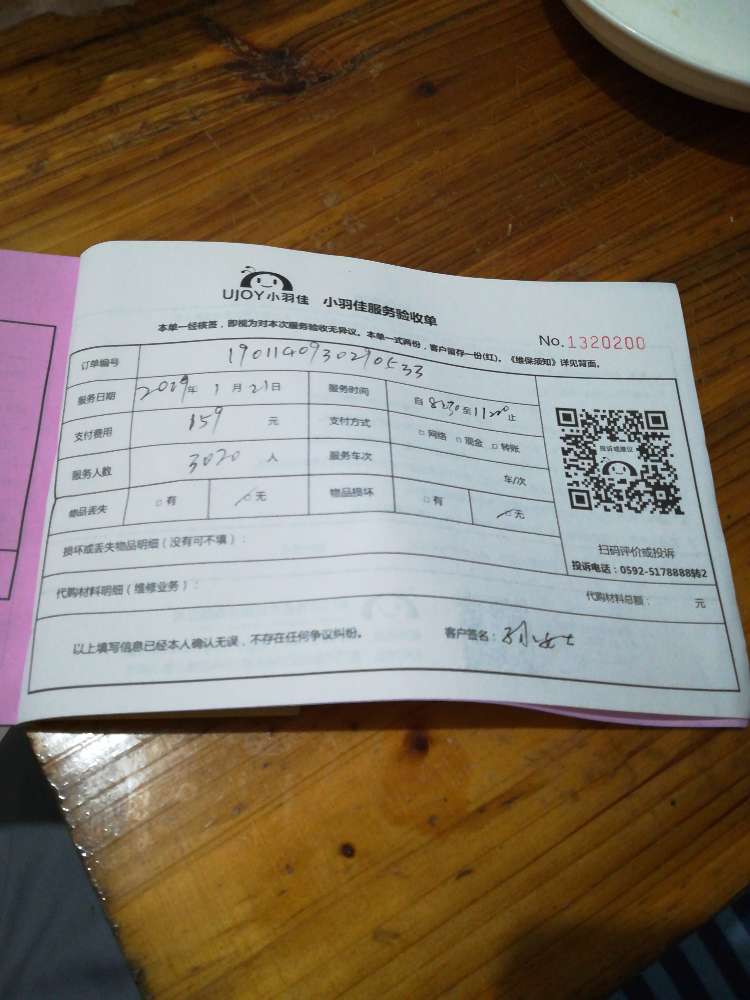 UJOY小羽佳 小羽佳服务验收单
本单一经核签，即视为对本次服务验收无异议。本单一式两份，客户留存一份(红)。《维保须知》详见背面。
No.1320200
订单编号 1901140930290533
服务日期 2019年 1月21日 服务时间 自8:30至11:00止
支付费用 159 元 支付方式 □网络 □现金 □转账
服务人数 3020 人 服务车次 车/次
物品丢失 □有 □无 物品损坏 □有 □无
损坏或丢失物品明细（没有可不填）：
代购材料明细（维修业务）： 代购材料总额： 元
以上填写信息已经本人确认无误，不存在任何争议纠纷。 客户签名：孙女士
投诉或建议
扫码评价或投诉
投诉电话：0592-5178888转2